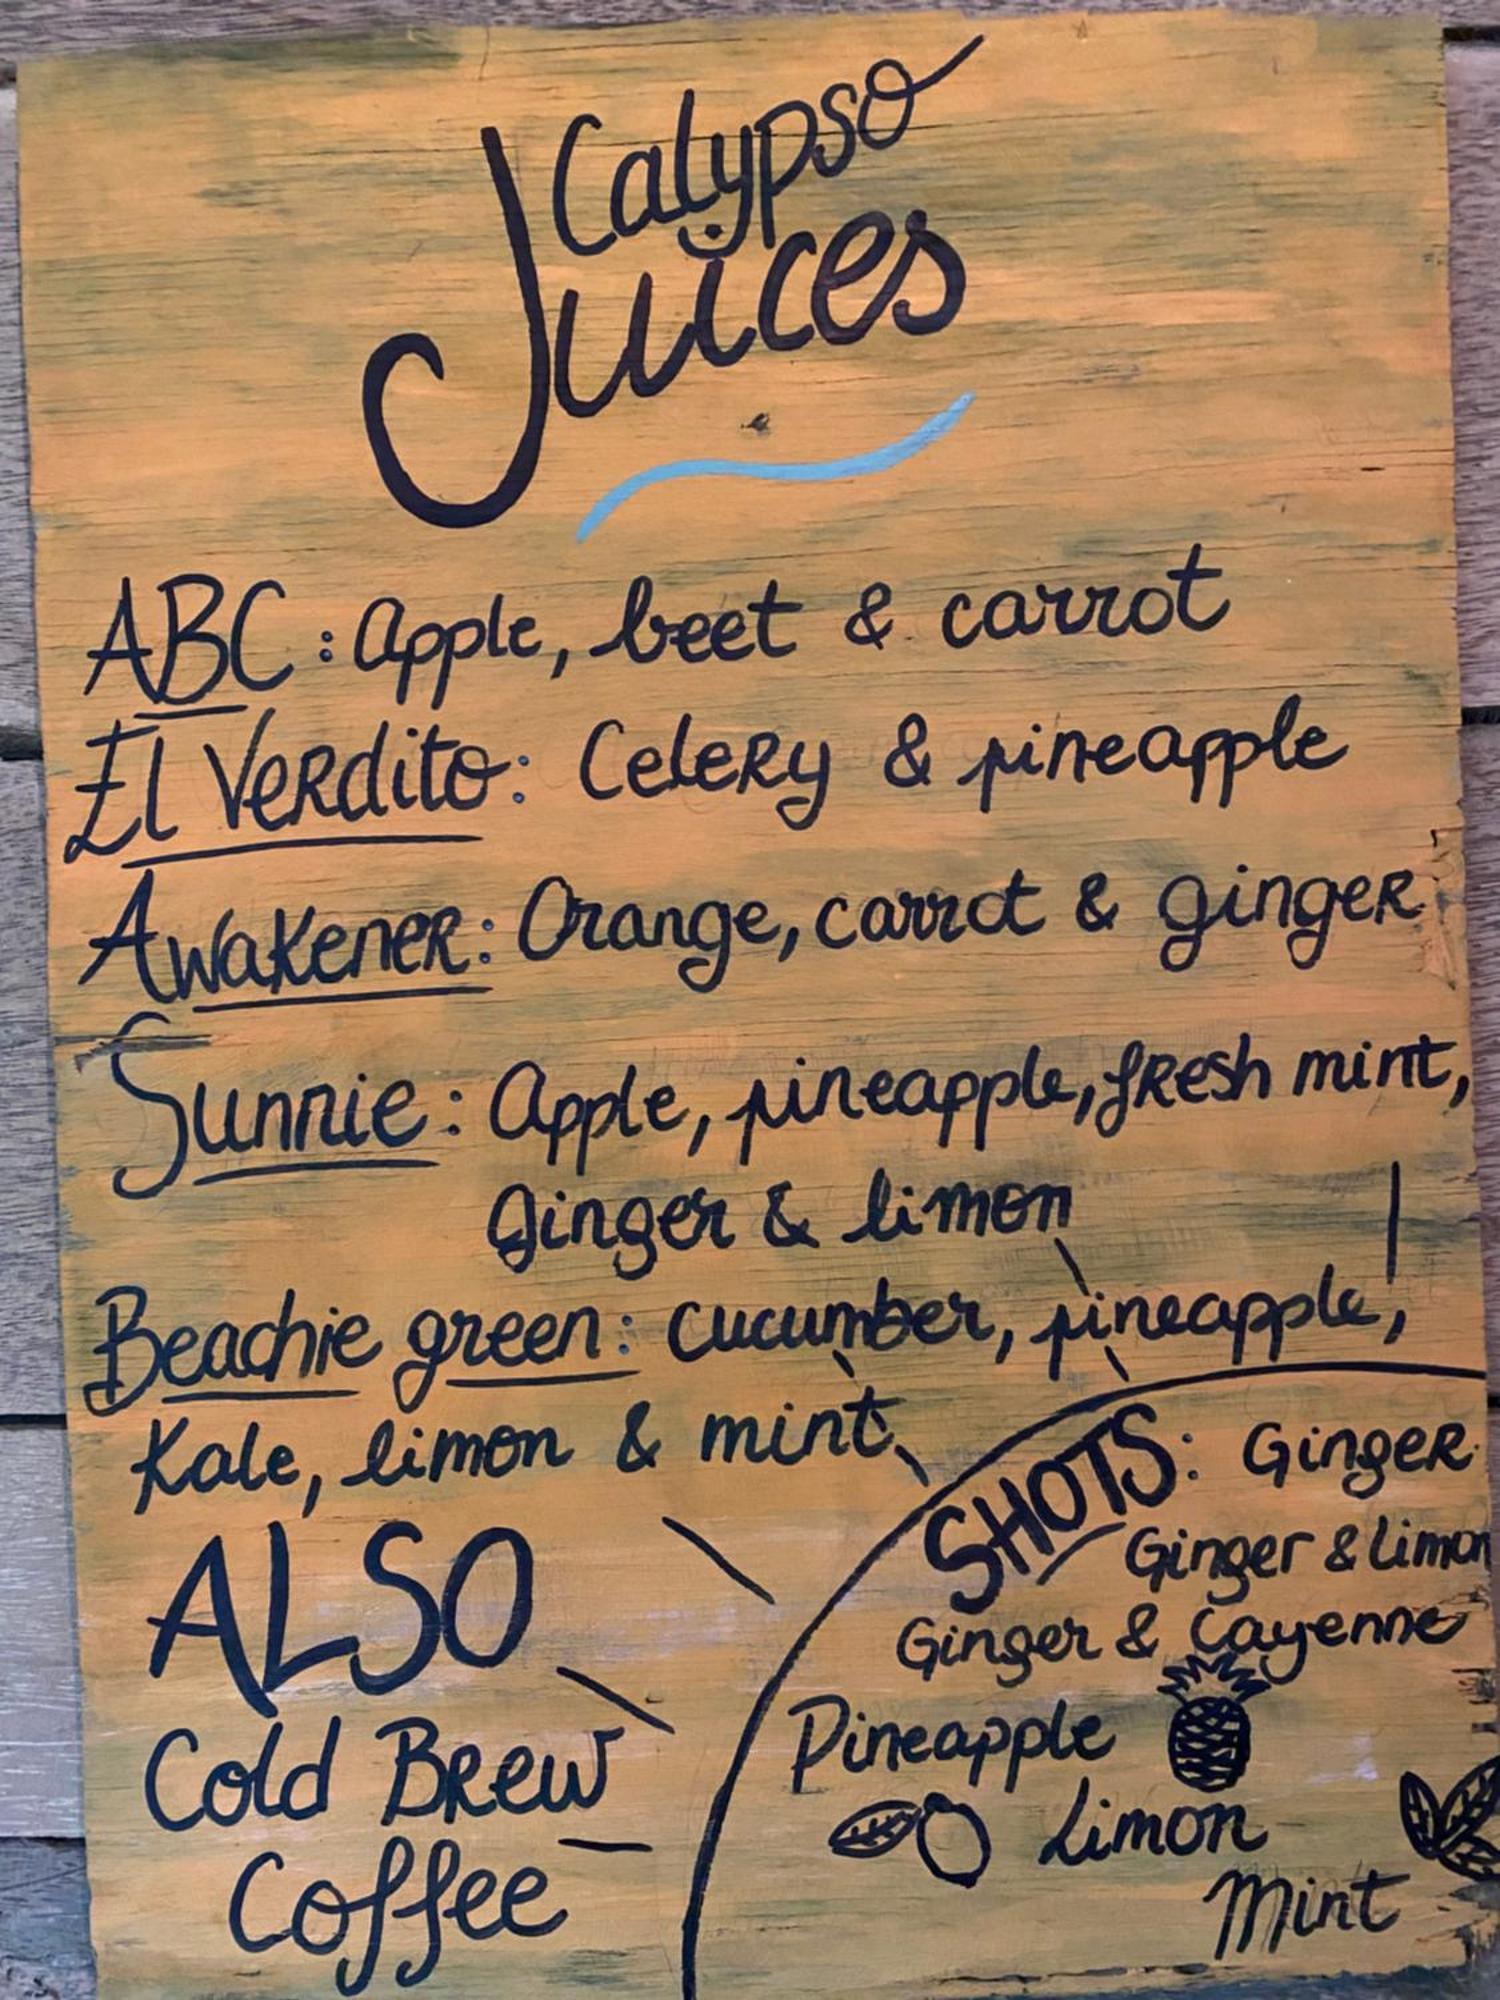 Calypso
Juices
ABC: Apple, beet & carrot
El Verdito: Celery & pineapple
Awakener: Orange, carrot & ginger
Sunnie: Apple, pineapple, fresh mint,
Ginger & limon
Beachie green: cucumber, pineapple,
Kale, limon & mint
SHOTS: Ginger
Ginger & Limon
Ginger & Cayenne
Pineapple
Limon
Mint
ALSO
Cold Brew
Coffee